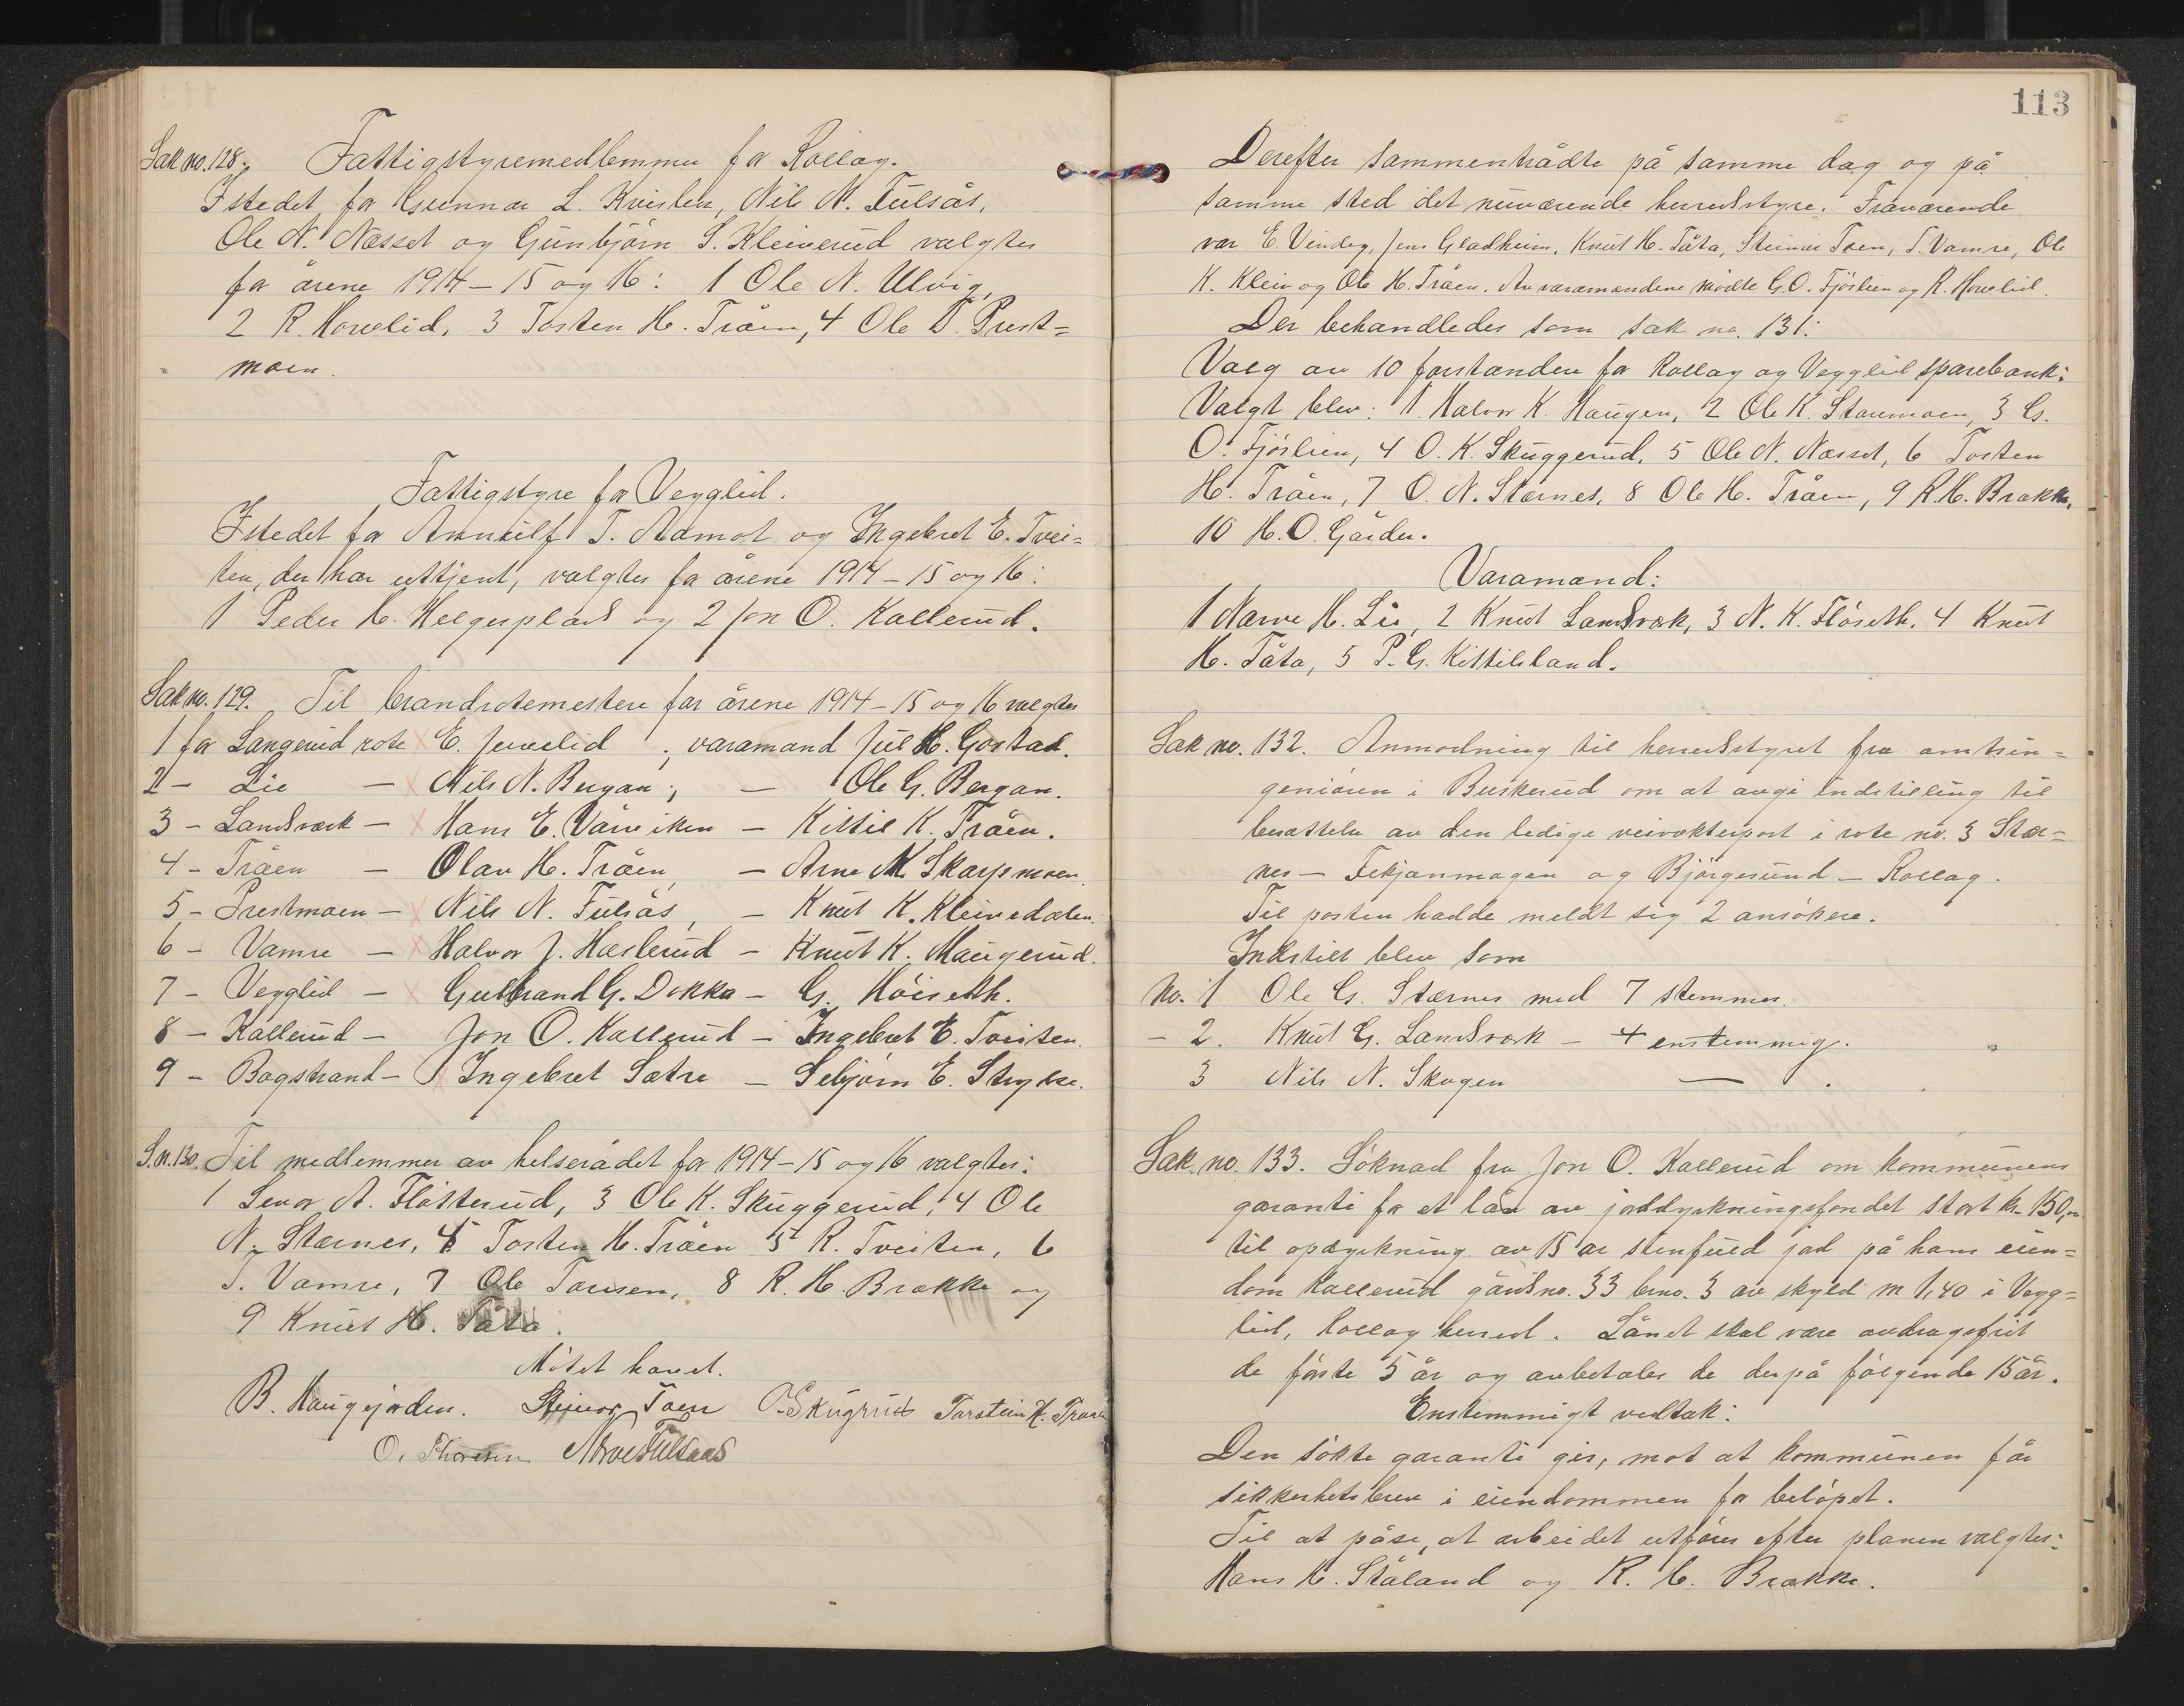 Sak no. 128. Fattigstyremedlemmer for Rollag.
Istedet for Gunnar L. Kvislen, Nils N. Fulsås,
Ole N. Næsset og Gunbjörn S. Kleiverud valgtes
for årene 1914-15 og 16: 1 Ole N. Ulvig,
2 R. Hovelid, 3 Tosten H. Tråen, 4 Ole D. Prest=
moen.
Fattigstyre for Veglid.
Istedet for Arnulf T. Aamot og Ingebret E. Tvei=
ten, der har uttjent, valgtes for årene 1914-15 og 16:
1 Peder H. Helgesplads og 2 Jon O. Kallerud.
Sak no. 129. Til brandrotemestere for årene 1914-15 og 16 valgtes
1 for Langerud rote E. Juvelid ; varamand Jul H. Gostad.
2 - Lie - Nils N. Bergan ; - Ole G. Bergan.
3 - Landsværk - Hans E. Vårviken - Kittil K. Tråen.
4 - Tråen - Olav H. Tråen, - Arne M. Skarpmoen.
5 - Prestmoen - Nils N. Fulsås, - Knut K. Kleivedalen.
6 - Vamre - Halvor J. Haslerud - Knut K. Haugerud.
7 - Veglid - Gulbrand G. Dokka - G. Höiseth.
8 - Kallerud - Jon O. Kallerud - Ingebret E. Tveiten.
9 - Bogstrand - Ingebret Sætre - Sebjörn E. Strykse.
S.n. 130. Til medlemmer av helserådet for 1914-15 og 16 valgtes:
1 Sevor A. Flåtterud, 3 Ole K. Skuggerud, 4 Ole
N. Stærnes, 4 Tosten H. Tråen 5 R. Tveiten, 6
T. Vamre, 7 Ole Tousen, 8 R. H. Brække og
9 Knut H. Tåta.
Mötet hævet.
B. Haugejorden. Steinar Toen O. Skugrud Torstein H. Traaen
O. Thoresen Narve Fulsaas
113
Derefter sammentrådte på samme dag og på
samme sted det nuværende herredsstyre. Fraværende
var E. Vindeg, Jens Gladheim, Knut H. Tåta, Steinar Toen, T. Vamre, Ole
K. Kleiv og Ole H. Tråen. Av varamændene mödte G. O. Fjöslien og R. Hovelid.
Der behandledes som sak no. 131:
Valg av 10 forstandere for Rollag og Vegglid sparebank:
Valgt blev: 1. Halvor K. Haugen, 2 Ole K. Staumoen, 3 G.
O. Fjöslien, 4 O. K. Skuggerud, 5 Ole N. Næsset, 6 Tosten
H. Tråen, 7 O. N. Stærnes, 8 Ole H. Tråen, 9 R. H. Brække,
10 H. O. Gårder.
Varamænd:
1 Narve H. Lie, 2 Knut Landsværk, 3 N. K. Flöseth, 4 Knut
H. Tåta, 5 P. G. Kittilsland.
Sak no. 132. Anmodning til herredsstyret fra amtsin=
geniören i Buskerud om at avgi indstilling til
besættelse av den ledige veivokterpost i rote no. 3 Stær=
nes - Fekjanmogen og Björgesund - Rollag.
Til posten hadde meldt sig 2 ansökere.
Indstilt blev som
No. 1 Ole G. Stærnes med 7 stemmer.
- 2. Knut G. Landsværk - 4 enstemmig.
3 Nils N. Skogen — .
Sak no. 133. Söknad fra Jon O. Kallerud om kommunens
garanti for et lån av jorddyrkningsfondet stort kr. 150,00
til opdyrkning av 15 ar stenfuld jord på hans eien=
dom Kallerud gårdsno. 33 brno. 3 av skyld m 1,40 i Vegg=
lid, Rollag herred. Lånet skal være avdragsfrit
de förste 5 år og avbetales de derpå fölgende 15 år.
Enstemmigt vedtak:
Den sökte garanti gis, mot at kommunen får
sikkerhetsbrev i eiendommen for belöpet.
Til at påse, at arbeidet utföres efter planen valgtes:
Hans H. Ståland og R. H. Brække.